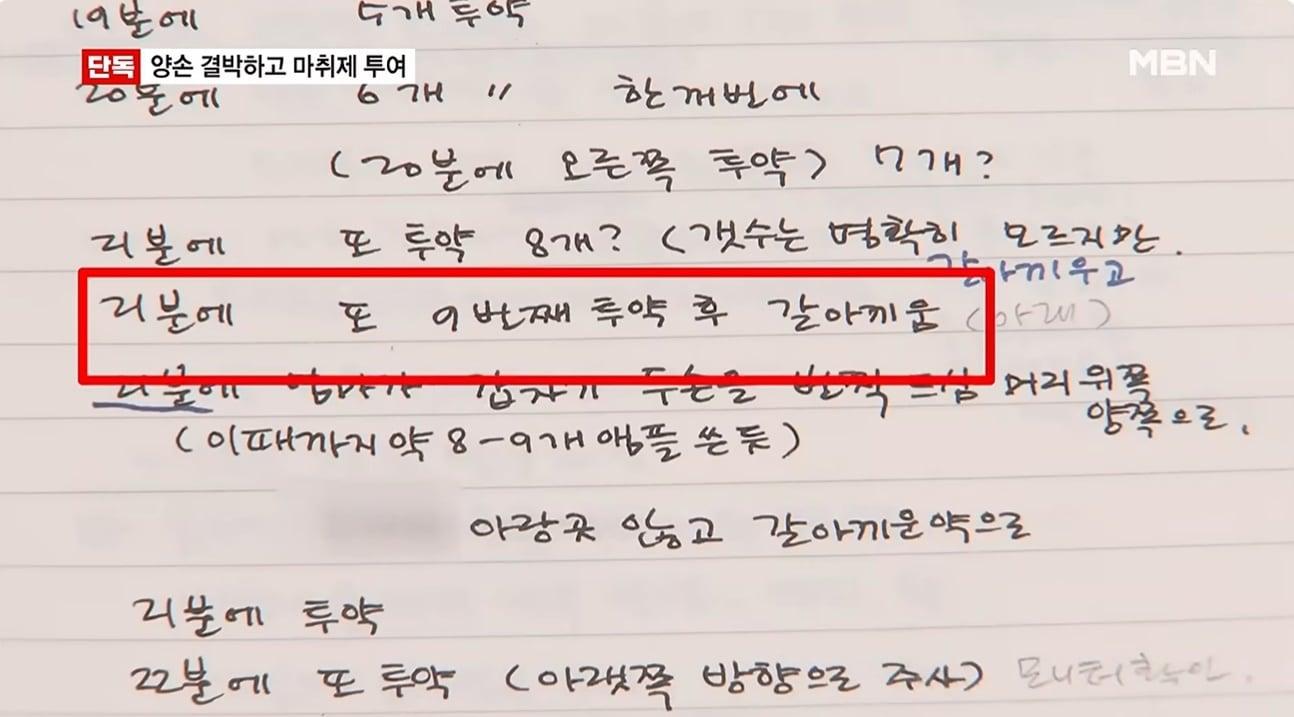 19분에 5개 투약
단독 양손 결박하고 마취제 투여
MBN
20분에 6개 〃 한꺼번에
(20분에 오른쪽 투약) 7개?
21분에 또 투약 8개? (갯수는 명확히 모르지만.
갈아끼우고
21분에 또 9번째 투약 후 갈아끼움 (아래)
21분에 엄마가 갑자기 두손을 번쩍 드심 머리 위쪽
양쪽으로.
(이때까지 약 8-9개 앰플 쓴 듯)
아랑곳 않고 갈아끼운약으로
21분에 투약
22분에 또 투약 (아랫쪽 방향으로 주사) 모니터